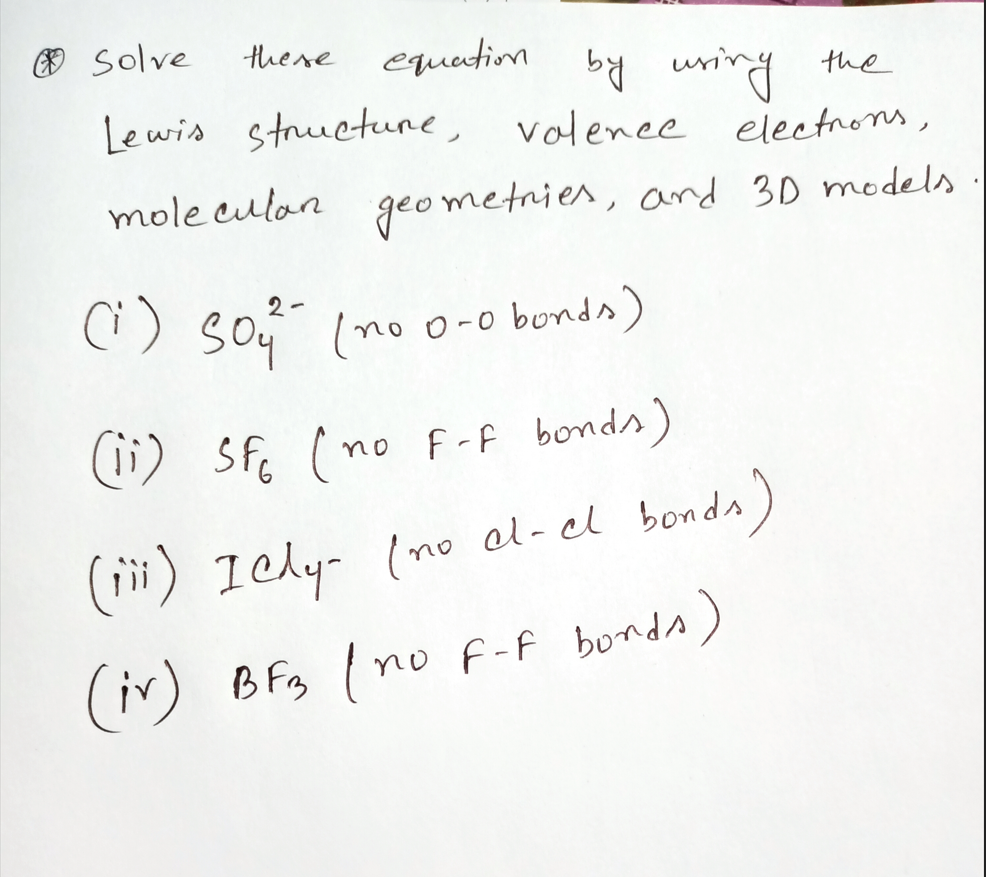 ⊛ Solve these equation by using the
Lewis structure, valence electrons,
molecular geometries, and 3D models.
(i) SO₄²⁻ (no O-O bonds)
(ii) SF₆ (no F-F bonds)
(iii) ICl₄- (no Cl-Cl bonds)
(iv) BF₃ (no F-F bonds)